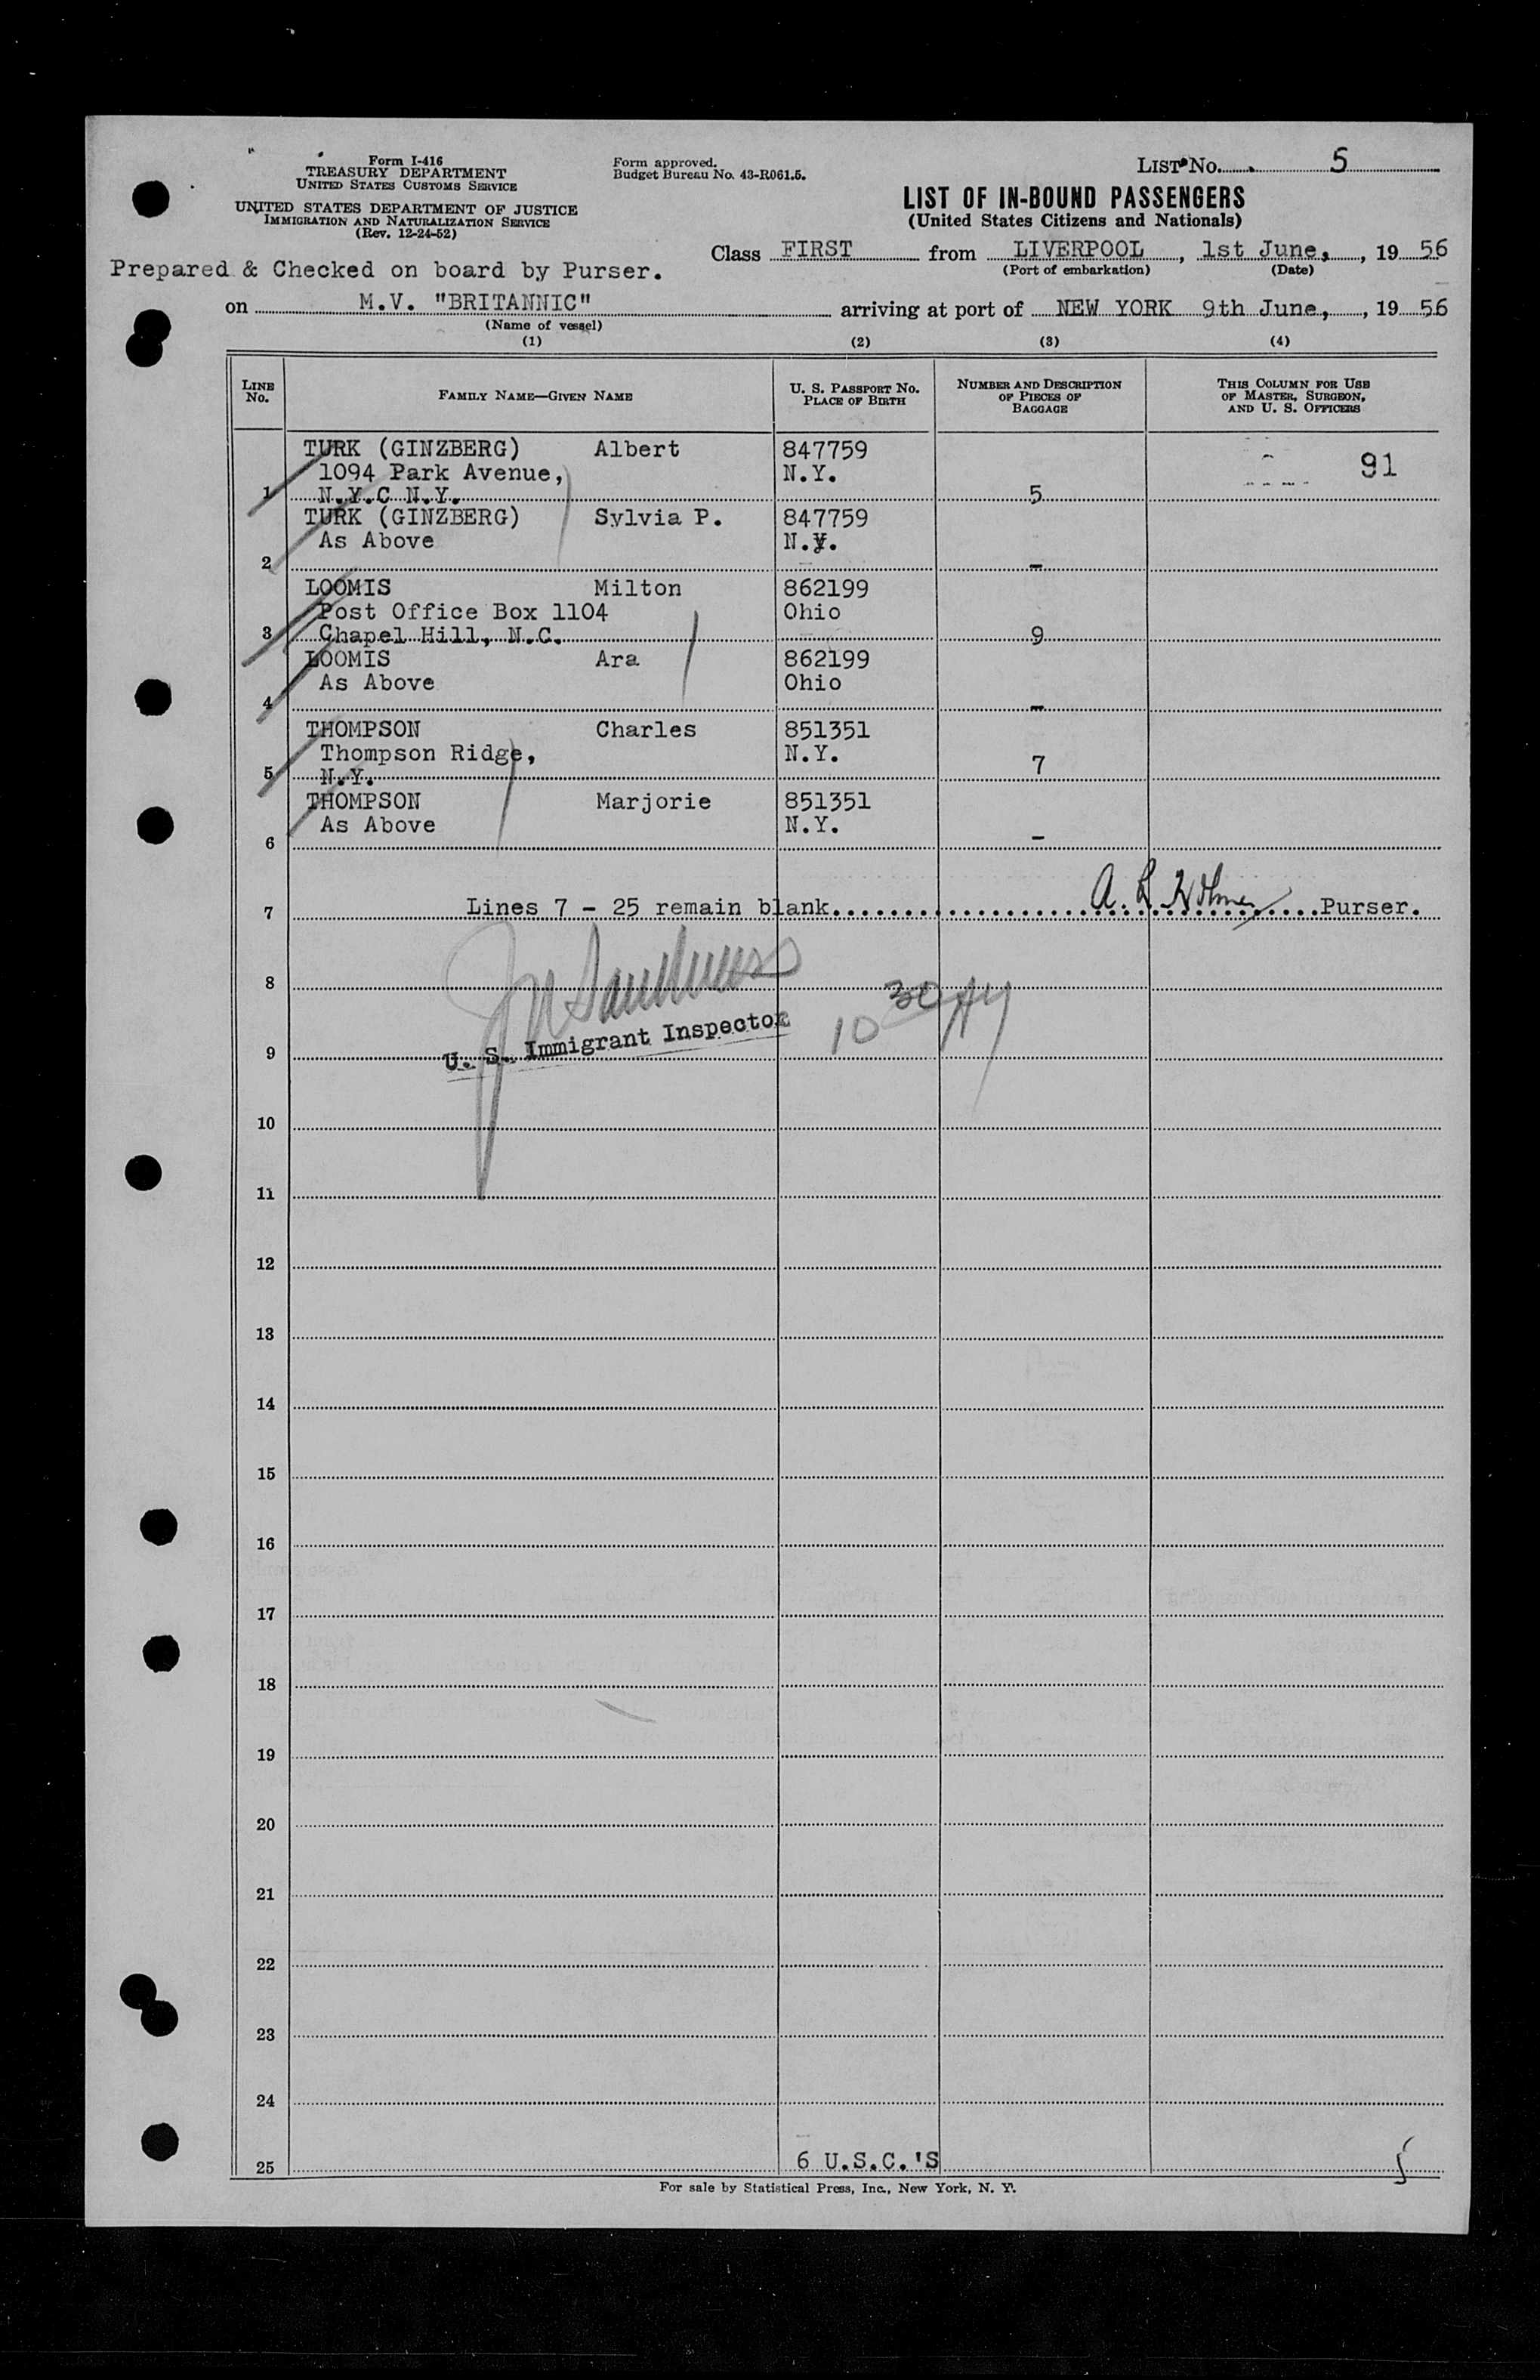 Form I-416
TREASURY DEPARTMENT
UNITED STATES CUSTOMS SERVICE
UNITED STATES DEPARTMENT OF JUSTICE
IMMIGRATION AND NATURALIZATION SERVICE
(Rev. 12-24-52)
Form approved.
Budget Bureau No. 43-R061.5.
LIST No. 5
LIST OF IN-BOUND PASSENGERS
(United States Citizens and Nationals)
Class FIRST from LIVERPOOL, 1st June, 19 56
(Port of embarkation) (Date)
Prepared & Checked on board by Purser.
on M.V. "BRITANNIC" arriving at port of NEW YORK 9th June, 19 56
(Name of vessel)
(1) (2) (3) (4)
LINE No. FAMILY NAME—GIVEN NAME U. S. PASSPORT No. PLACE OF BIRTH NUMBER AND DESCRIPTION OF PIECES OF BAGGAGE THIS COLUMN FOR USE OF MASTER, SURGEON, AND U. S. OFFICERS
TURK (GINZBERG) Albert 847759
1094 Park Avenue, N.Y. 91
1 N.Y.C N.Y. 5
TURK (GINZBERG) Sylvia P. 847759
As Above N.Y.
2 -
LOOMIS Milton 862199
Post Office Box 1104 Ohio
3 Chapel Hill, N.C. 9
LOOMIS Ara 862199
As Above Ohio
4 -
THOMPSON Charles 851351
Thompson Ridge, N.Y.
5 N.Y. 7
THOMPSON Marjorie 851351
As Above N.Y.
6 -
7 Lines 7 - 25 remain blank. A. L. Purser.
8
U. S. Immigrant Inspector 10 30
9
10
11
12
13
14
15
16
17
18
19
20
21
22
23
24
25 6 U.S.C.'S
For sale by Statistical Press, Inc., New York, N. Y.